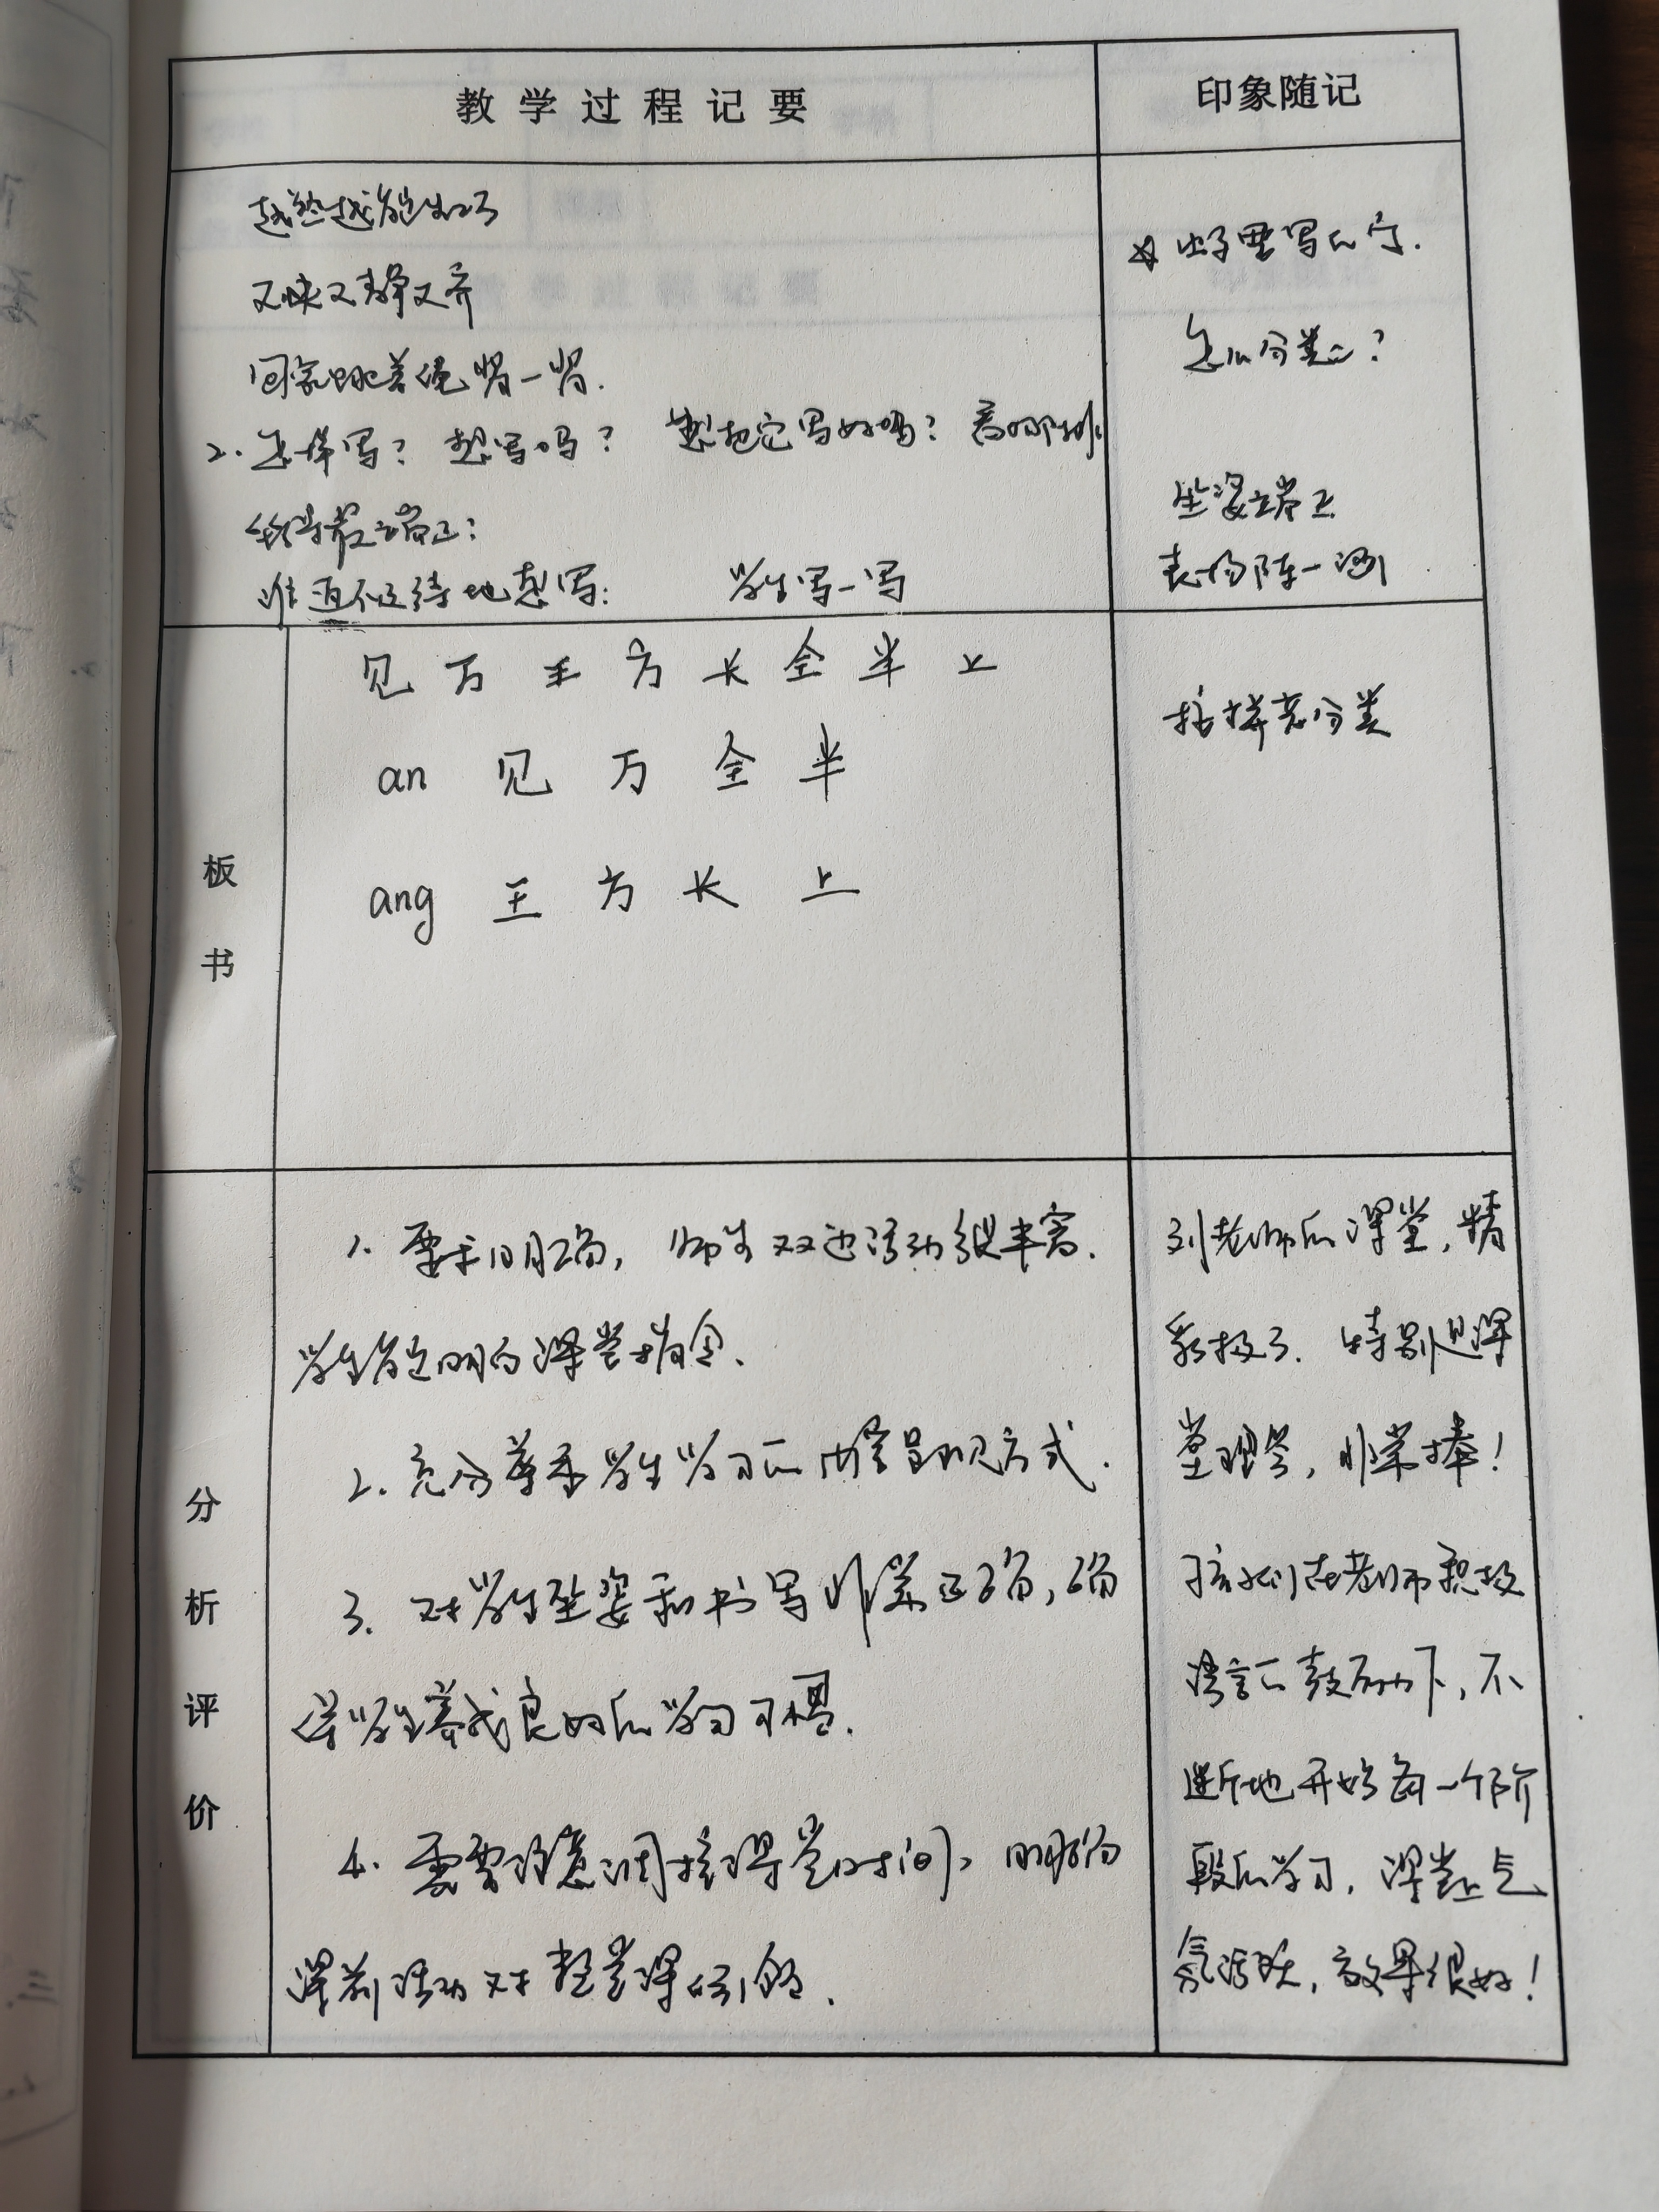 教学过程记要
印象随记
越熟越能生巧
又快又静又齐
回家跳着绳背一背.
2. 怎样写？想写吗？ 想把它写好吗？
端正:
谁迫不及待地想写: 学生写一写
出示要写的字.
怎么分类的？
坐姿端正
表扬阵一测
板书
见 万 王 方 长 全 半 上
an 见 万 全 半
ang 王 方 长 上
按拼音分类
分析评价
1. 要求明确, 师生双边活动很丰富.
学生能明白课堂指令.
2. 充分尊重学生学习的 呈现方式.
3. 对学生坐姿和书写非常正确, 确
保学生养成良好的学习习惯.
4. 需要注意调控课堂时间, 明确
课前活动对整堂课的
刘老师的课堂, 精
彩极了. 特别是课
堂理答, 非常棒!
孩子们在老师积极
语言的鼓励下, 不
断地开始每一个阶
段的学习, 课堂上气
氛活跃, 效果很好!